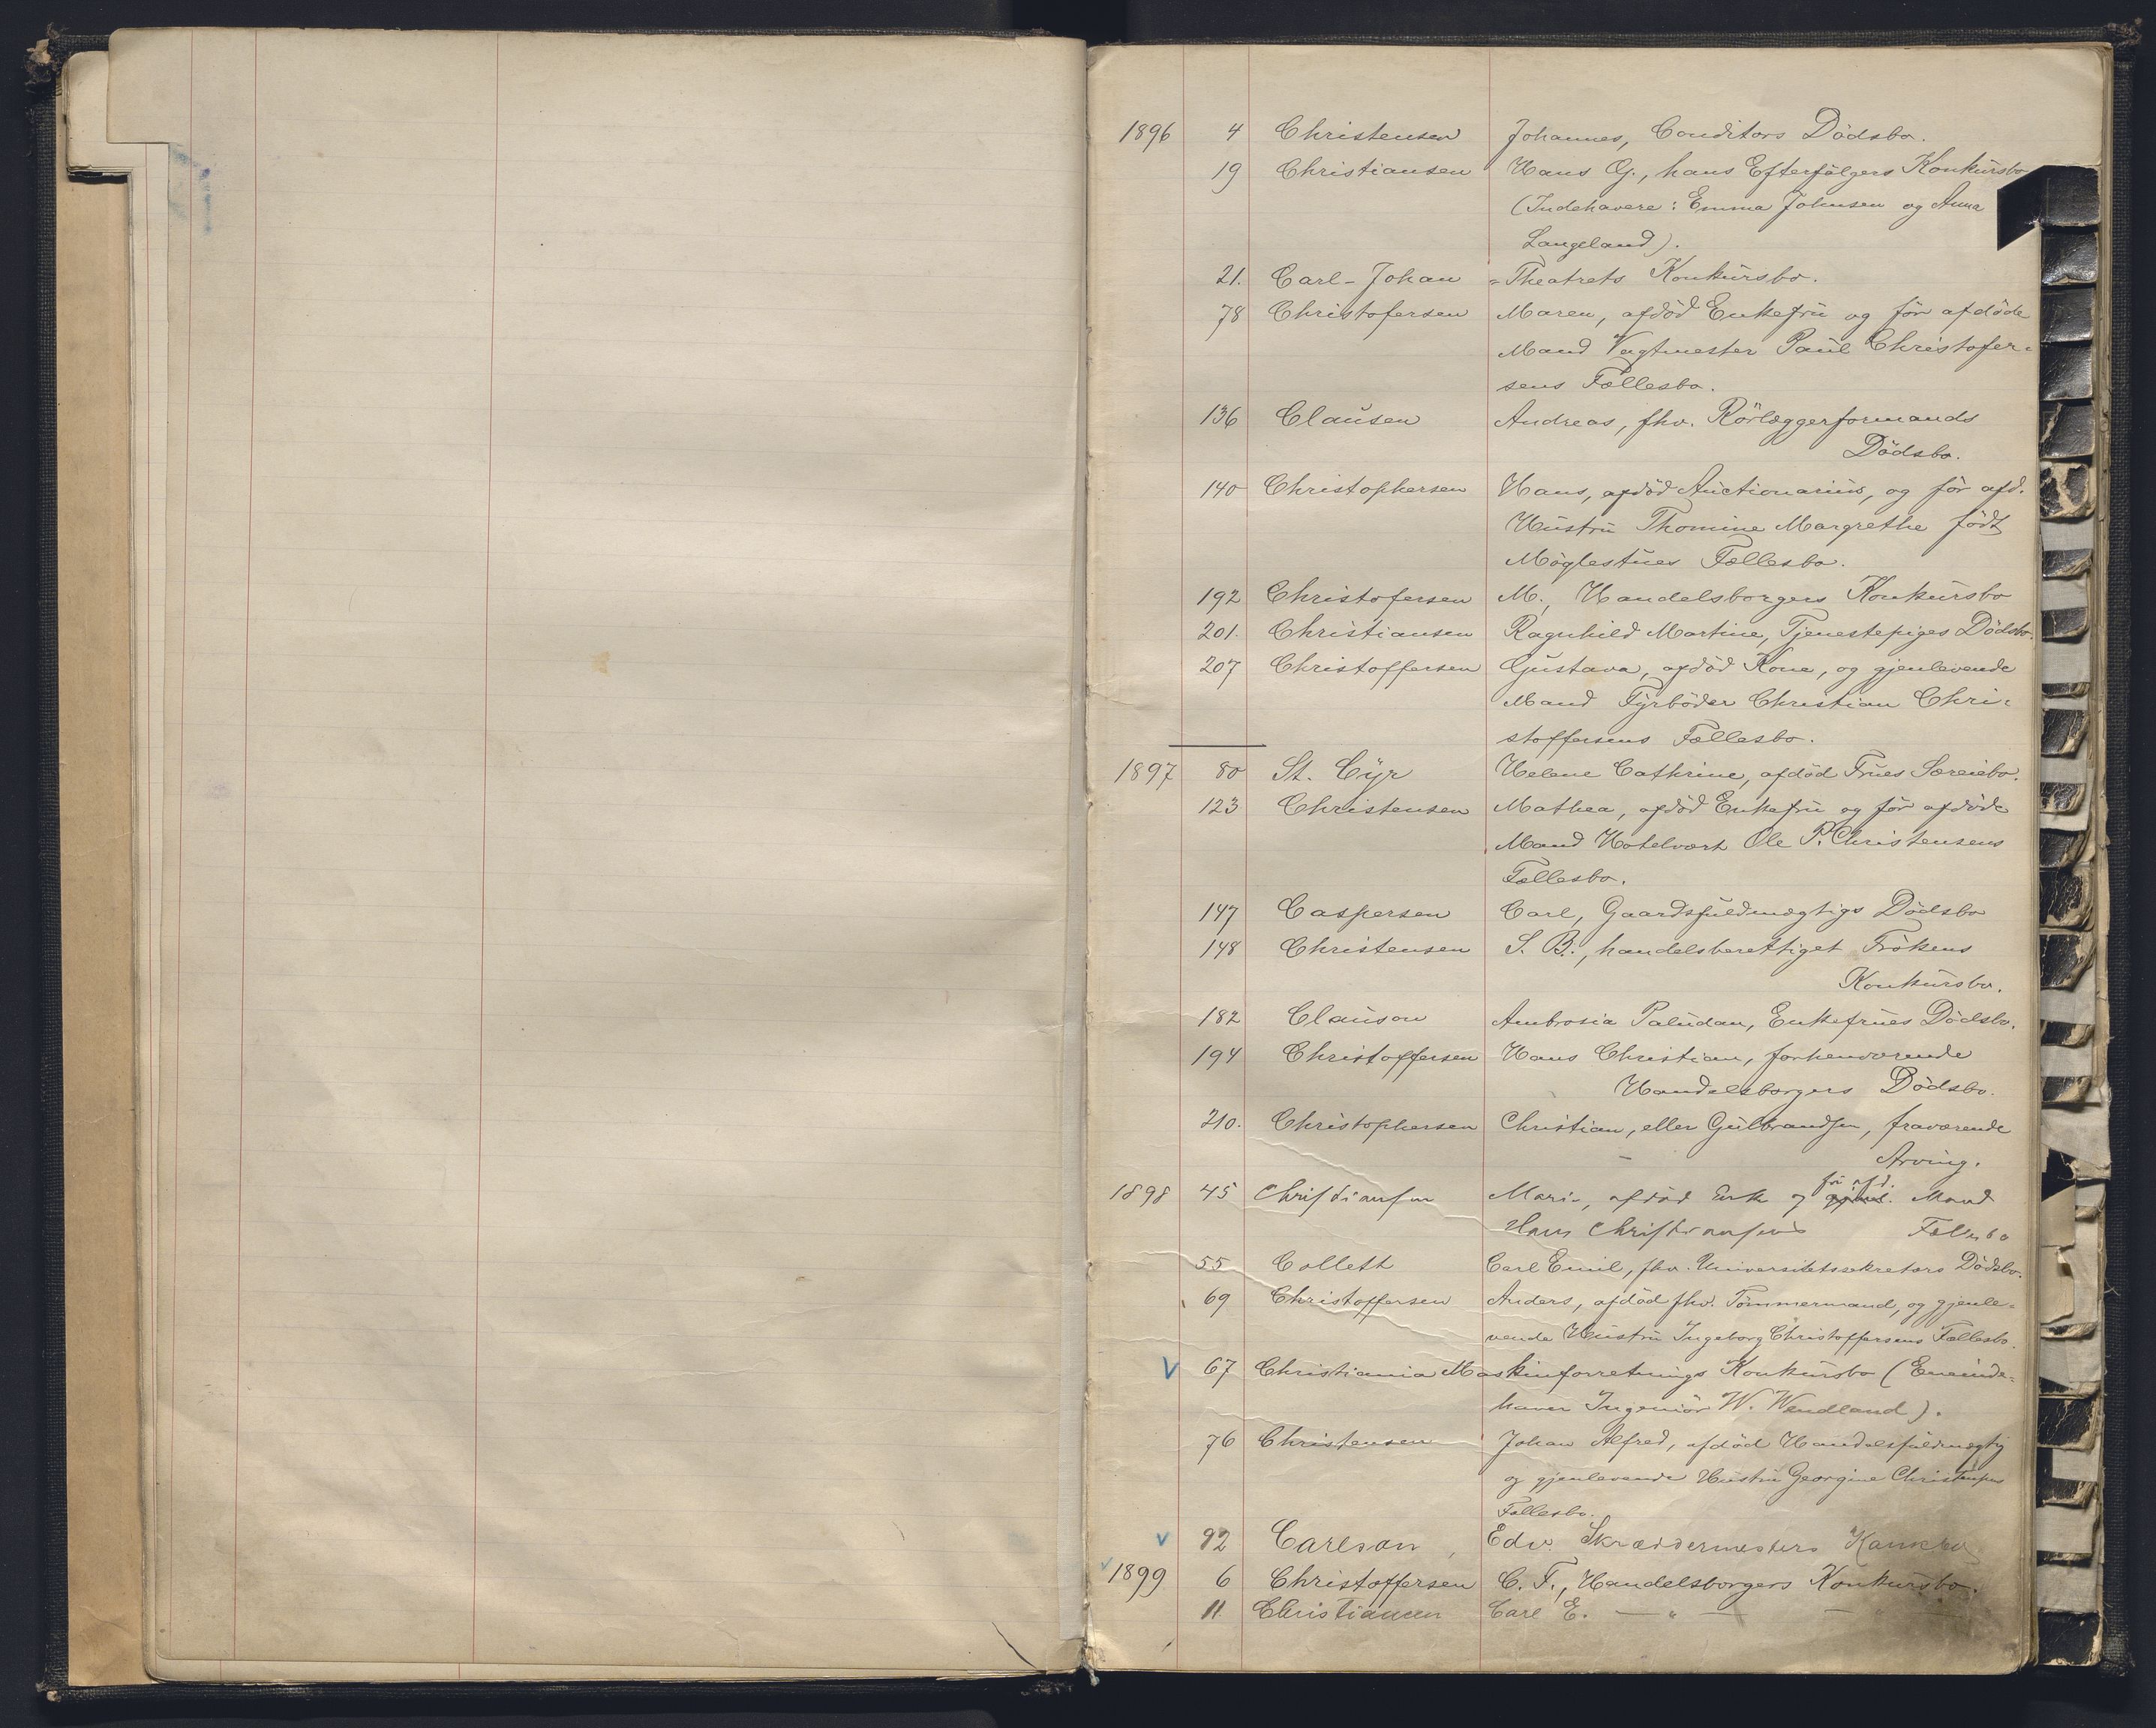 1896 4 Christensen Johannes, Conditors Dödsbo.
19 Christiansen Hans G., hans Efterfölgers Konkürsbo
(Indehavere: Emma Johnsen og Anna
Langeland).
21. Carl-Johan =Theatrets Konkürsbo.
78 Christofersen Maren, afdöd Enkefrü og för afdöde
Mand Vagtmester Paül Christofer=
sens Fællesbo.
136 Claüsen Andreas, fhv. Rörlæggerformands
Dödsbo.
140 Christophersen Hans, afdöd Aüctionariüs, og för afd.
Hüstrü Thomine Margrethe födt
Möglestües Fællesbo.
192 Christofersen M., Handelsborgers Konkürsbo
201. Christiansen Ragnhild Martine, Tjenestepiges Dödsbo.
207 Christoffersen Güstava, afdöd Kone, og gjenlevende
Mand Fyrböder Christian Chri=
stoffersens Fællesbo.
1897 80 St. Cÿr Helene Cathrine, afdöd Frües Særeiebo.
123 Christensen Mathea, afdöd Enkefrü og för afdöde
Mand Hotelvært Ole P. Christensens
Fællesbo.
147 Caspersen Carl, Gaardsfüldmægtigs Dödsbo
148 Christensen S. B., handelsberettiget Frökens
Konkürsbo.
182 Claüson Ambrosia Palüdan, Enkefrües Dödsbo.
194 Christoffersen Hans Christian, forhenværende
Handelsborgers Dödsbo.
210. Christophersen Christian, eller Gülbrandsen, fraværende
Arving.
för afd.
1898 45 Christiansen Mari, afdöd Enke og gjenl. Mand
Hans Christiansens Fællesbo
55 Collett Carl Emil, fhv. Universitetssekretærs Dödsbo.
69 Christoffersen Anders, afdöd fhv. Tömmermand, og gjenle=
vende Hüstrü Ingeborg Christoffersens Fællesbo.
V 67 Christiania Maskinforretnings Konkürsbo (Eneinde=
haver Ingeniör W. Wendland).
76 Christensen Johan Alfred, afdöd Handelsfüldmægtig
og gjenlevende Hüstrü Georgine Christensens
Fællesbo.
v 92 Carlson, Edv. Skræddermesters
v 1899 6 Christoffersen C. F., Handelsborgers Konkürsbo.
11. Christiansen Carl E. — " — — " —